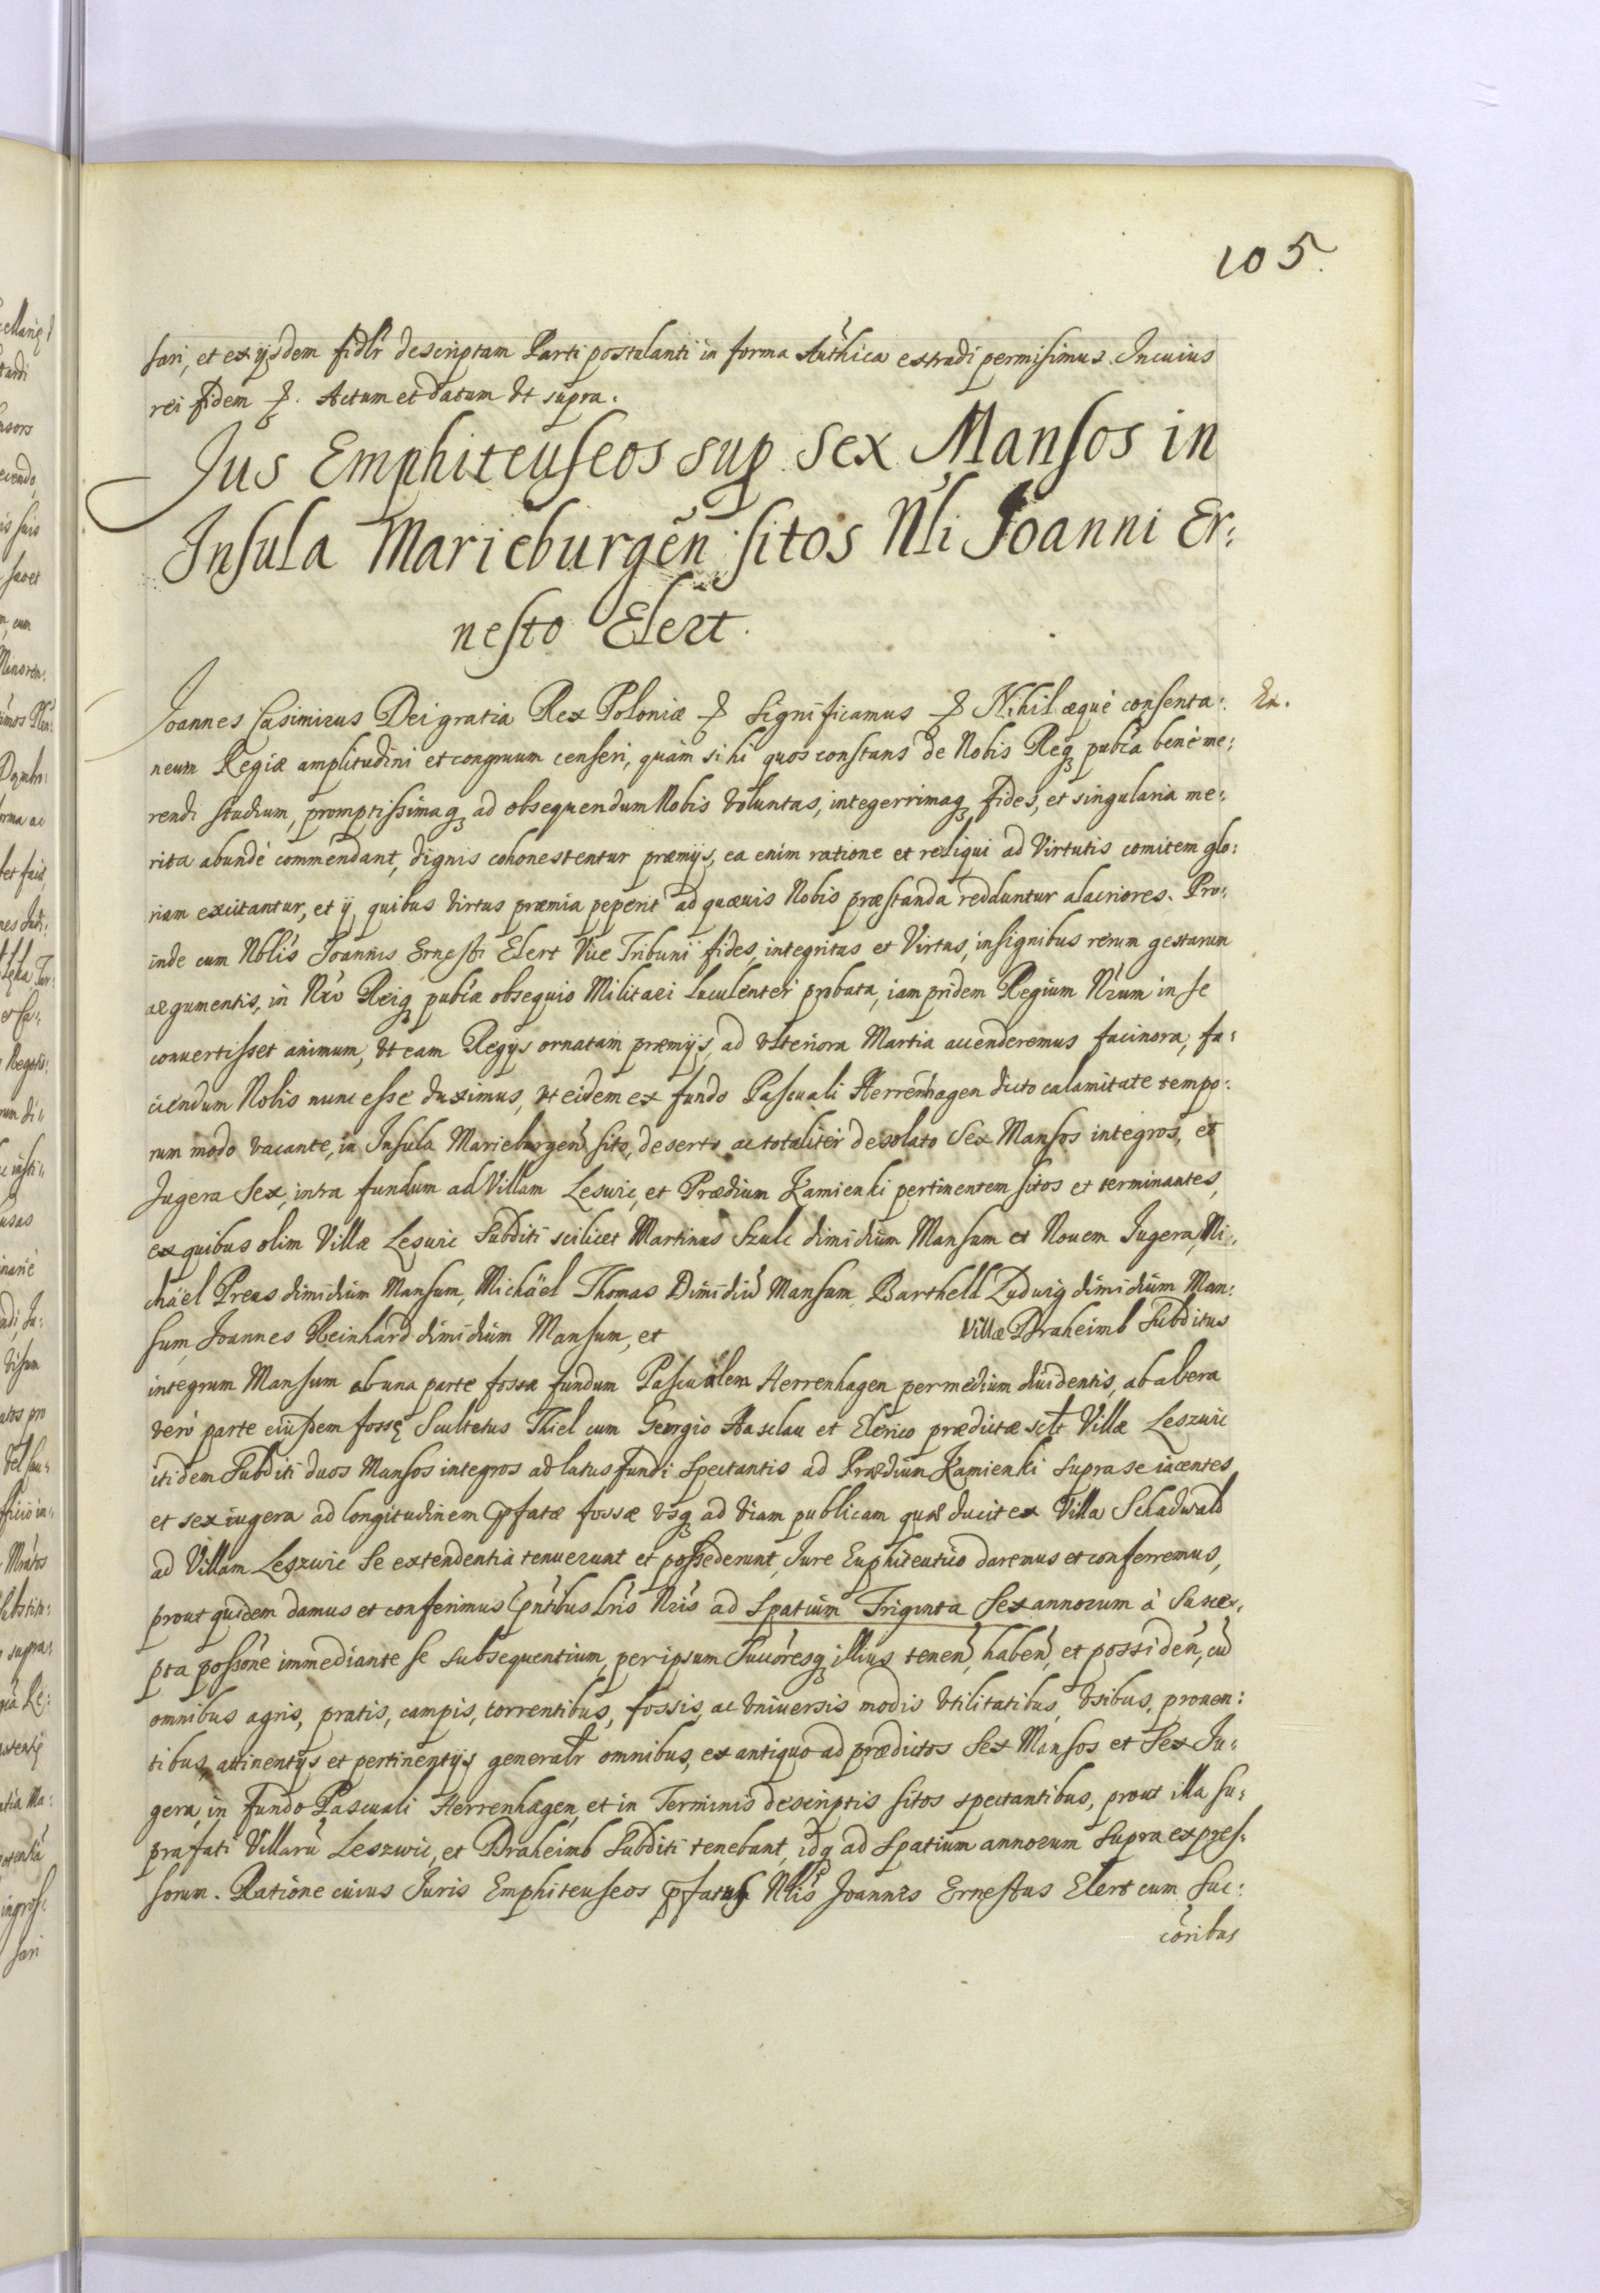 105.
sari, et ex ijsdem fidlr descriptam Parti postulanti in forma Authica extradi permisimus. In cuius
rei fidem &. Actum et datum Vt supra.
Jus Emphiteuseos sup sex Mansos in
Insula Marieburgen sitos Nli Joanni Er:
nesto Elert.
Joannes Casimirus Dei gratia Rex Poloniæ & Significamus & Nihil æquè consenta:
neum Regiæ amplitudini et congruum censeri, quàm si hi quos constans de Nobis Reiq publca benè me:
rendi studium, promptissimaq ad obsequendum Nobis Voluntas, integerrimaq fides, et singularia me:
rita abundè commendant, dignis cohonestentur præmijs, ea enim ratione et reliqui ad Virtutis comitem glo:
riam excitantur, et ij, quibus Virtus præmia peperit ad quævis Nobis præstanda redduntur alacriores. Pro:
inde cum Nblis Joannis Ernesti Elert Vice Tribuni fides, integritas et Virtus, insignibus rerum gestarum
argumentis, in Nro Reiq publcæ obsequio Militari luculenter probata, iam pridem Regium Nrum in se
convertisset animum, Vt eam Regijs ornatam præmijs, ad Vlteriora Martia accenderemus facinora, fa:
ciendum Nobis nunc esse duximus, Vt eidem ex fundo Pascuali Herrenhagen dicto calamitate tempo:
rum modo vacante, in Insula Marieburgen sito, deserto ac totaliter desolato Sex Mansos integros, et
Jugera Sex, intra fundum ad Villam Leswic, et Prædium Kamienki pertinentem sitos et terminantes,
ex quibus olim Villæ Leswic Subditi scilicet Martinus Szulc dimidium Mansum et Novem Jugera, Mi:
chäel Preus dimidium Mansum, Michäel Thomas Dimidiū Mansum, Barthell Ludwig dimidium Man:
sum, Joannes Reinhard dimidium Mansum, et Villæ Draheimb Subditus
integrum Mansum ab una parte fossæ fundum Pascualem Herrenhagen per medium dividentis, ab altera
verò parte eiusdem fossę Scultetus Thiel cum Georgio Haselau et Elerico prædictæ sclt Villæ Leszwic
itidem Subditi duos Mansos integros ad latus fundi Spectantis ad Prædium Kamienki supra se iacentes
et sex iugera ad longitudinem pfatæ fossæ Vsq ad Viam publicam quæ ducit ex Villa Schadwald
ad Villam Leszwic se extendentia tenuerunt et possederunt, Jure Emphiteutico daremus et conferremus,
prout quidem damus et conferimus pntibus lris Nris ad Spatium Triginta Sex annorum à Susce:
pta possõne immediante se subsequentium, per ipsum Succõresq illius tenen, haben, et possiden, cū
omnibus agris, pratis, campis, torrentibus, fossis, ac Vniversis modis Vtilitatibus, Vsibus, proven:
tibus, attinentijs et pertinentijs generalr omnibus, ex antiquo ad prædictos Sex Mansos et Sex Ju:
gera, in fundo Pascuali Herrenhagen, et in Terminis descriptis sitos spectantibus, prout illa su:
prafati Villarū Leszwic, et Draheimb Subditi tenebant, idq ad Spatium annorum Supra expres:
sorum. Ratione cuius Juris Emphiteuseos pfatus Nlis Joannes Ernestus Elert cum Suc:
cõribus